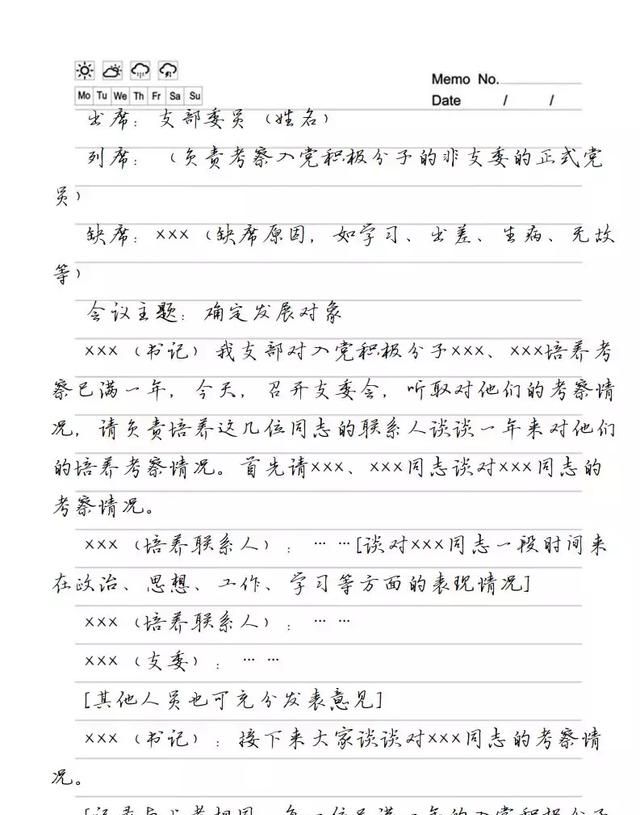 Memo No.
Mo Tu We Th Fr Sa Su
Date / /
出席：支部委员（姓名）
列席：（负责考察入党积极分子的非支委的正式党
员）
缺席：×××（缺席原因，如学习、出差、生病、无故
等）
会议主题：确定发展对象
×××（书记）我支部对入党积极分子×××、×××培养考
察已满一年，今天，召开支委会，听取对他们的考察情
况，请负责培养这几位同志的联系人谈谈一年来对他们
的培养考察情况。首先请×××、×××同志谈对×××同志的
考察情况。
×××（培养联系人）：… …[谈对×××同志一段时间来
在政治、思想、工作、学习等方面的表现情况]
×××（培养联系人）：… …
×××（支委）：… …
[其他人员也可充分发表意见]
×××（书记）：接下来大家谈谈对×××同志的考察情
况。